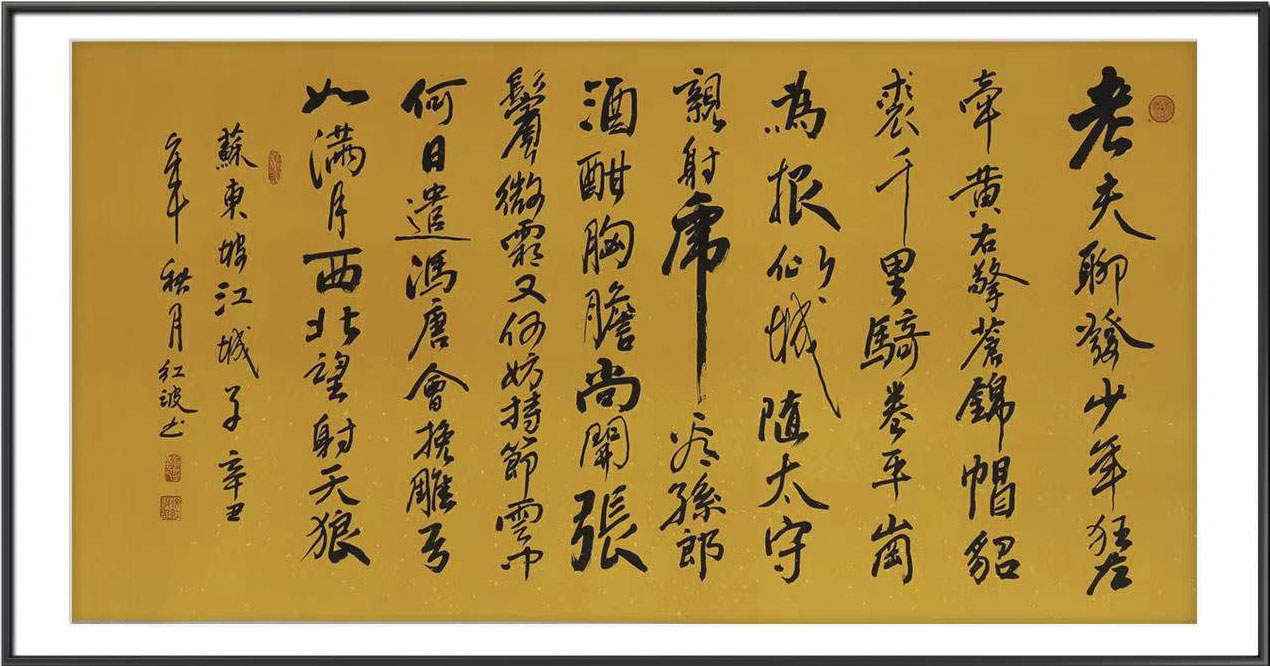 老夫聊發少年狂左
牽黃右擎蒼錦帽貂
裘千里騎卷平崗
為報傾城隨太守
親射虎看孫郎
酒酣胸膽尚開張
鬢微霜又何妨持節雲中
何日遣馮唐會挽雕弓
如滿月西北望射天狼
蘇東坡江城子辛丑
年秋月紅波书